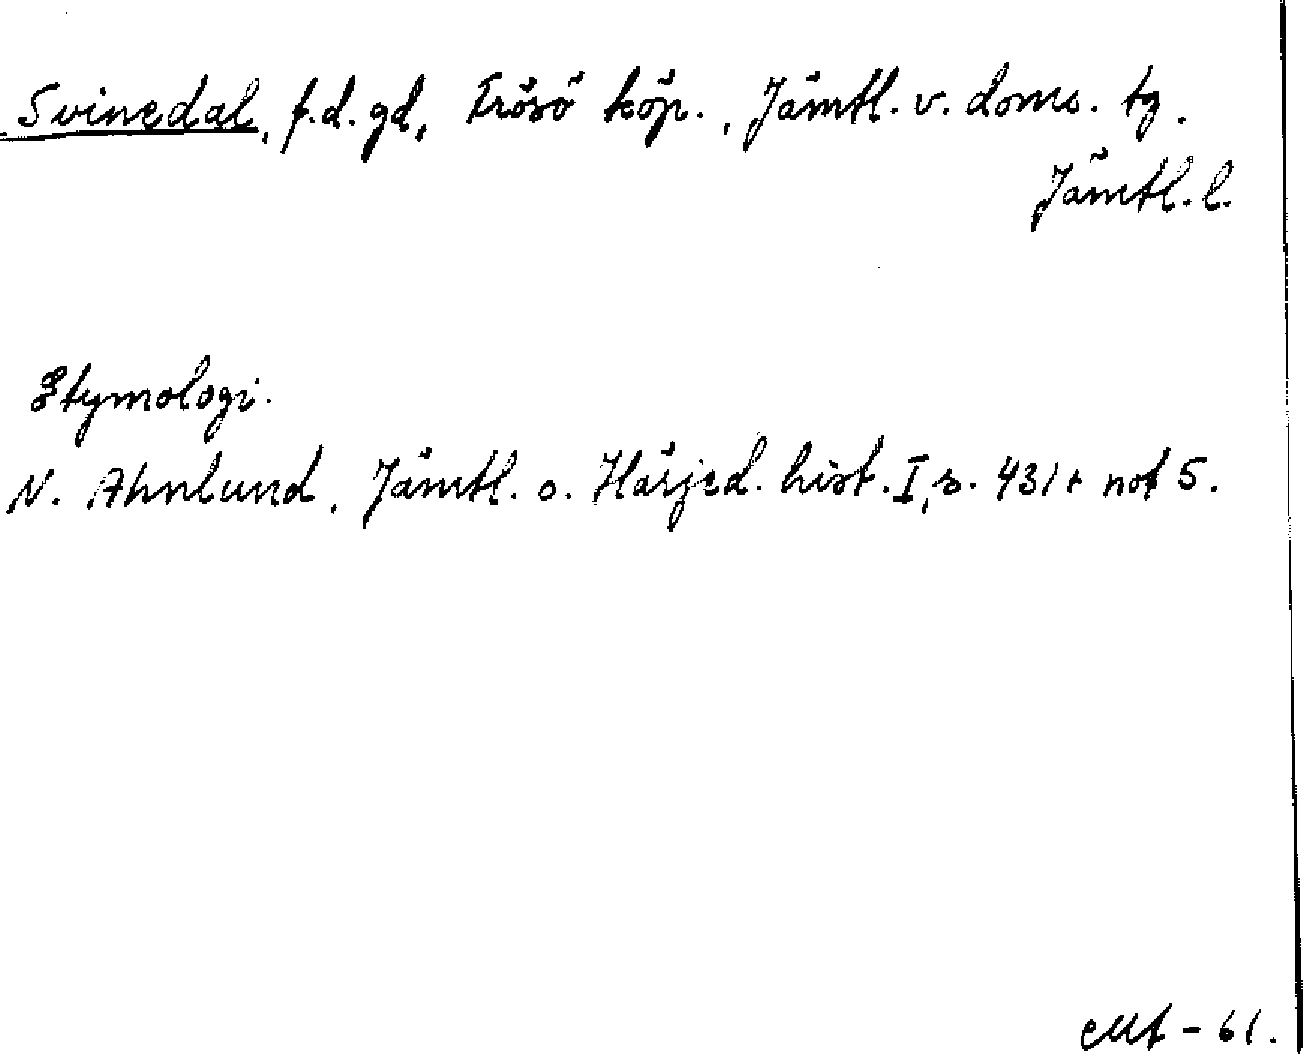 Svinedal, f.d. gd, Frösö köp., Jämtl. v. doms. tg.
Jämtl. l.
Etymologi.
N. Ahnlund, Jämtl. o. Härjed. hist. I, s. 431 + not 5.
- 61.